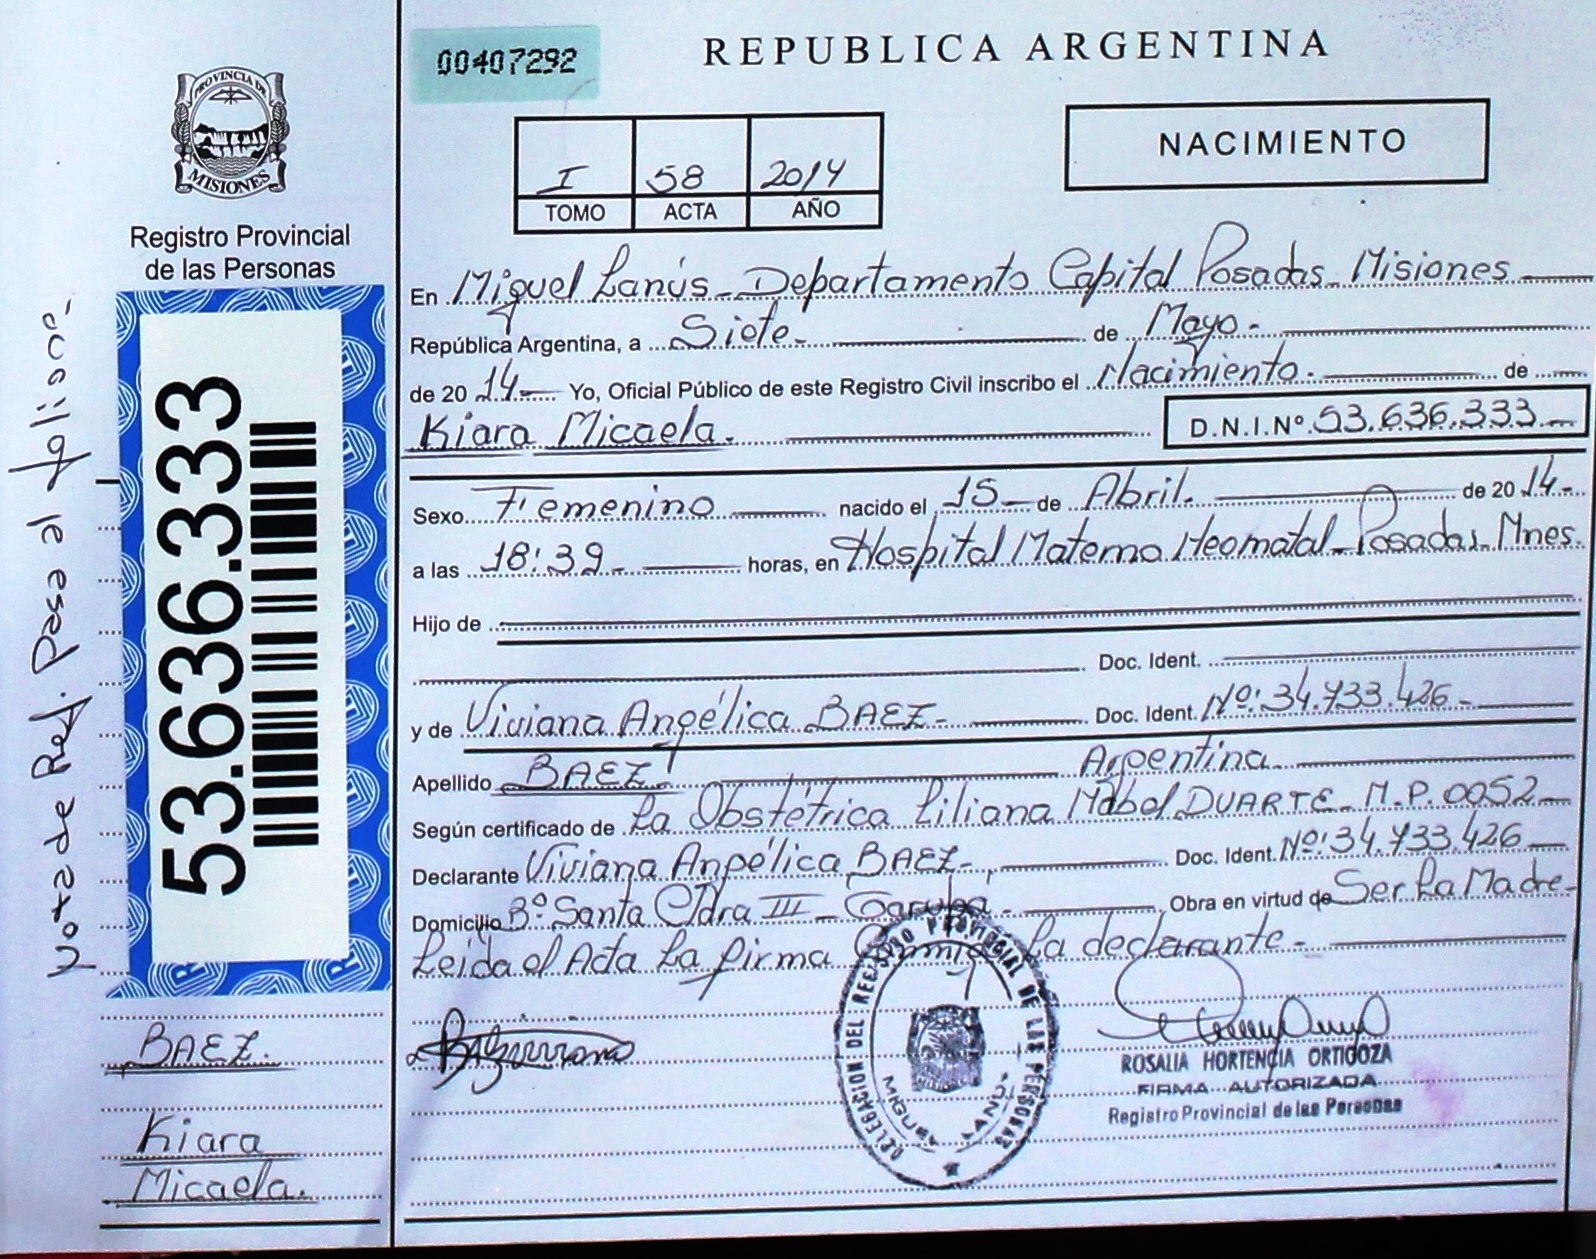 00407292
REPUBLICA ARGENTINA
PROVINCIA DE
MISIONES
Registro Provincial
de las Personas
I 58 2014
TOMO ACTA AÑO
NACIMIENTO
En Miguel Lanús - Departamento Capital Posadas - Misiones
República Argentina, a Siete - de Mayo -
de 20 14 - Yo, Oficial Público de este Registro Civil inscribo el Nacimiento - de
Kiara Micaela. D.N.I.Nº 53.636.333 -
Sexo Femenino nacido el 15 - de Abril. de 20 14 -
a las 18:39 - horas, en Hospital Materno Neonatal - Posadas, Mnes.
Hijo de
Doc. Ident.
y de Viviana Angélica BAEZ - Doc. Ident. Nº: 34.733.426 -
Apellido BAEZ Argentina
Según certificado de La Obstétrica Liliana Mabel DUARTE - M.P. 0052 -
Declarante Viviana Angélica BAEZ - Doc. Ident. Nº: 34.733.426 -
Domicilio Bº Santa III - Garupá - Obra en virtud de Ser La Madre -
Leída el Acta La firma La declarante -
ROSALIA HORTENCIA ORTIGOZA
FIRMA AUTORIZADA
Registro Provincial de las Personas
DELEGACION DEL REGISTRO PROVINCIAL DE LAS PERSONAS
MIGUEL LANUS
53.636.333
Nota de Ref. Pasa al folio
BAEZ.
Kiara
Micaela.